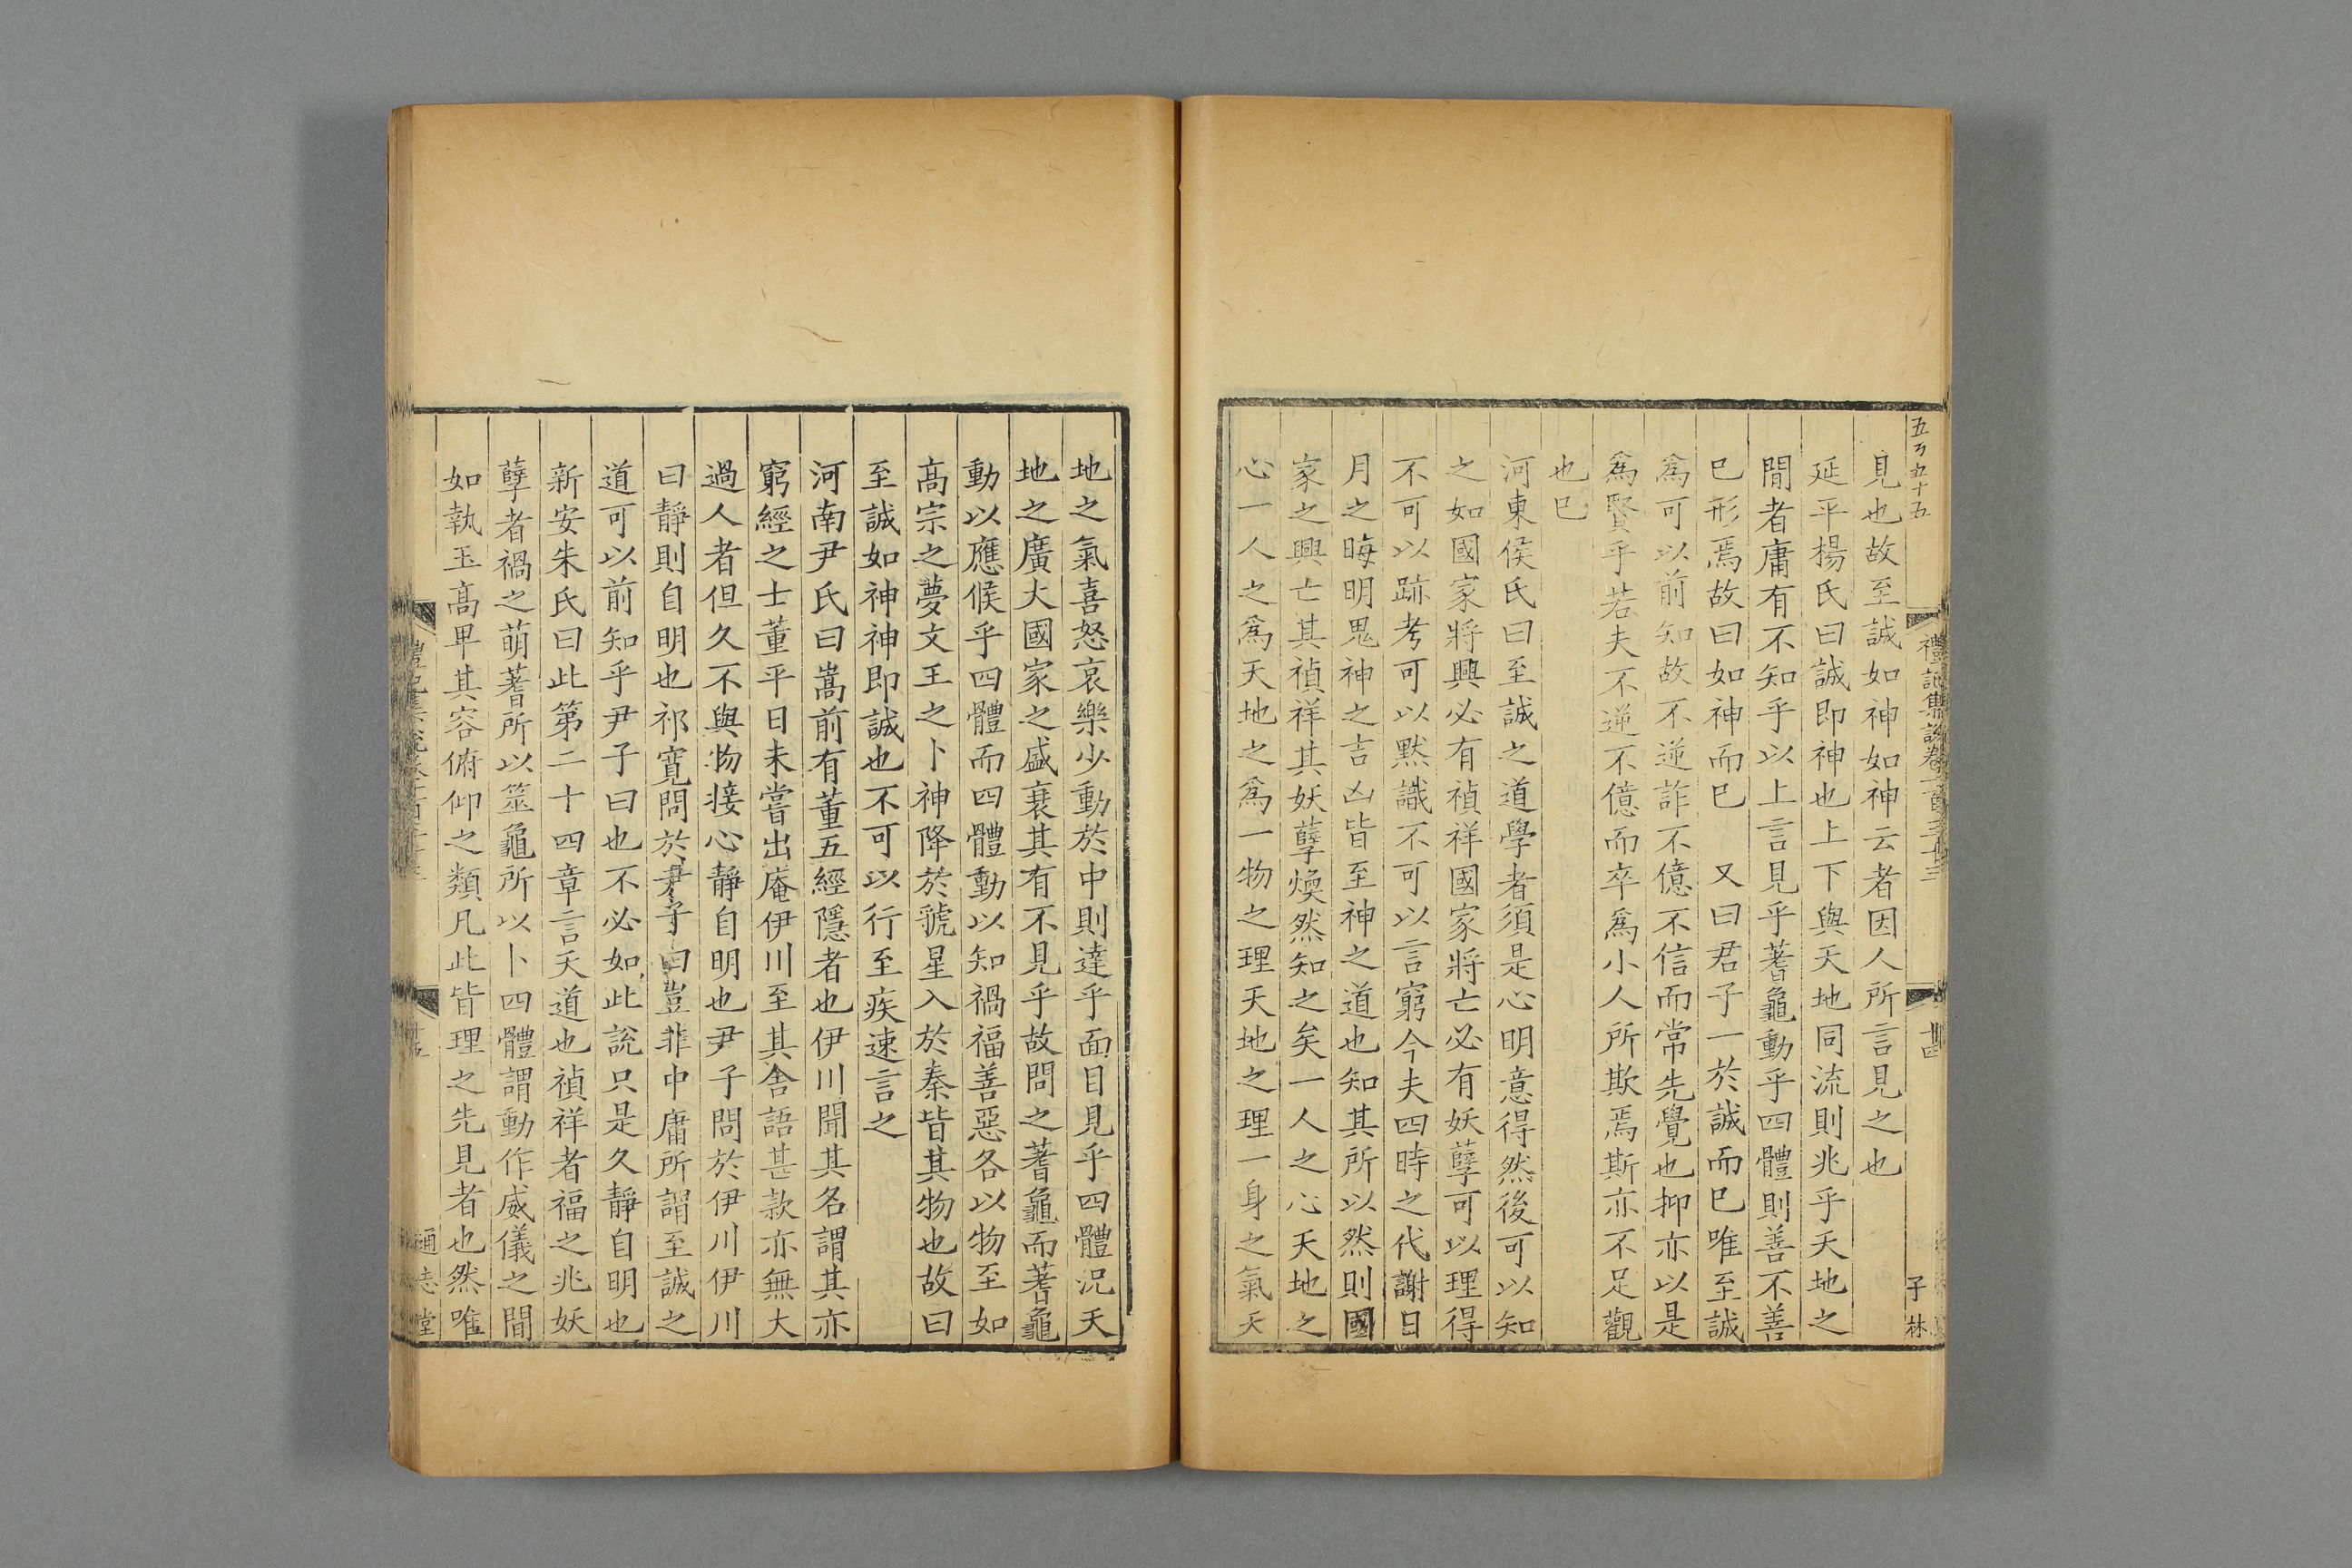 五丂五十五
禮記集説卷一百三十三
子林
見也故至誠如神如神云者因人所言見之也
延平楊氏曰誠即神也上下與天地同流則兆乎天地之
間者庸有不知乎以上言見乎蓍龜動乎四體則善不善
已形焉故曰如神而已　又曰君子一於誠而已唯至誠
爲可以前知故不逆詐不億不信而常先覺也抑亦以是
爲賢乎若夫不逆不億而卒爲小人所欺焉斯亦不足觀
也已
河東侯氏曰至誠之道學者須是心明意得然後可以知
之如國家將興必有禎祥國家將亡必有妖孽可以理得
不可以跡考可以黙識不可以言窮今夫四時之代謝日
月之晦明鬼神之吉凶皆至神之道也知其所以然則國
家之興亡其禎祥其妖孽煥然知之矣一人之心天地之
心一人之爲天地之爲一物之理天地之理一身之氣天
地之氣喜怒哀樂少動於中則達乎面目見乎四體況天
地之廣大國家之盛衰其有不見乎故問之蓍龜而蓍龜
動以應候乎四體而四體動以知禍福善惡各以物至如
髙宗之夢文王之卜神降於虢星入於秦皆其物也故曰
至誠如神神即誠也不可以行至疾速言之
河南尹氏曰嵩前有董五經隱者也伊川聞其名謂其亦
窮經之士董平日未嘗出庵伊川至其舍語甚款亦無大
過人者但久不與物接心靜自明也尹子問於伊川伊川
曰靜則自明也祁寛問於尹子曰豈非中庸所謂至誠之
道可以前知乎尹子曰也不必如此說只是久靜自明也
新安朱氏曰此第二十四章言天道也禎祥者福之兆妖
孽者禍之萌蓍所以筮龜所以卜四體謂動作威儀之間
如執玉髙卑其容俯仰之類凡此皆理之先見者也然唯
通志堂